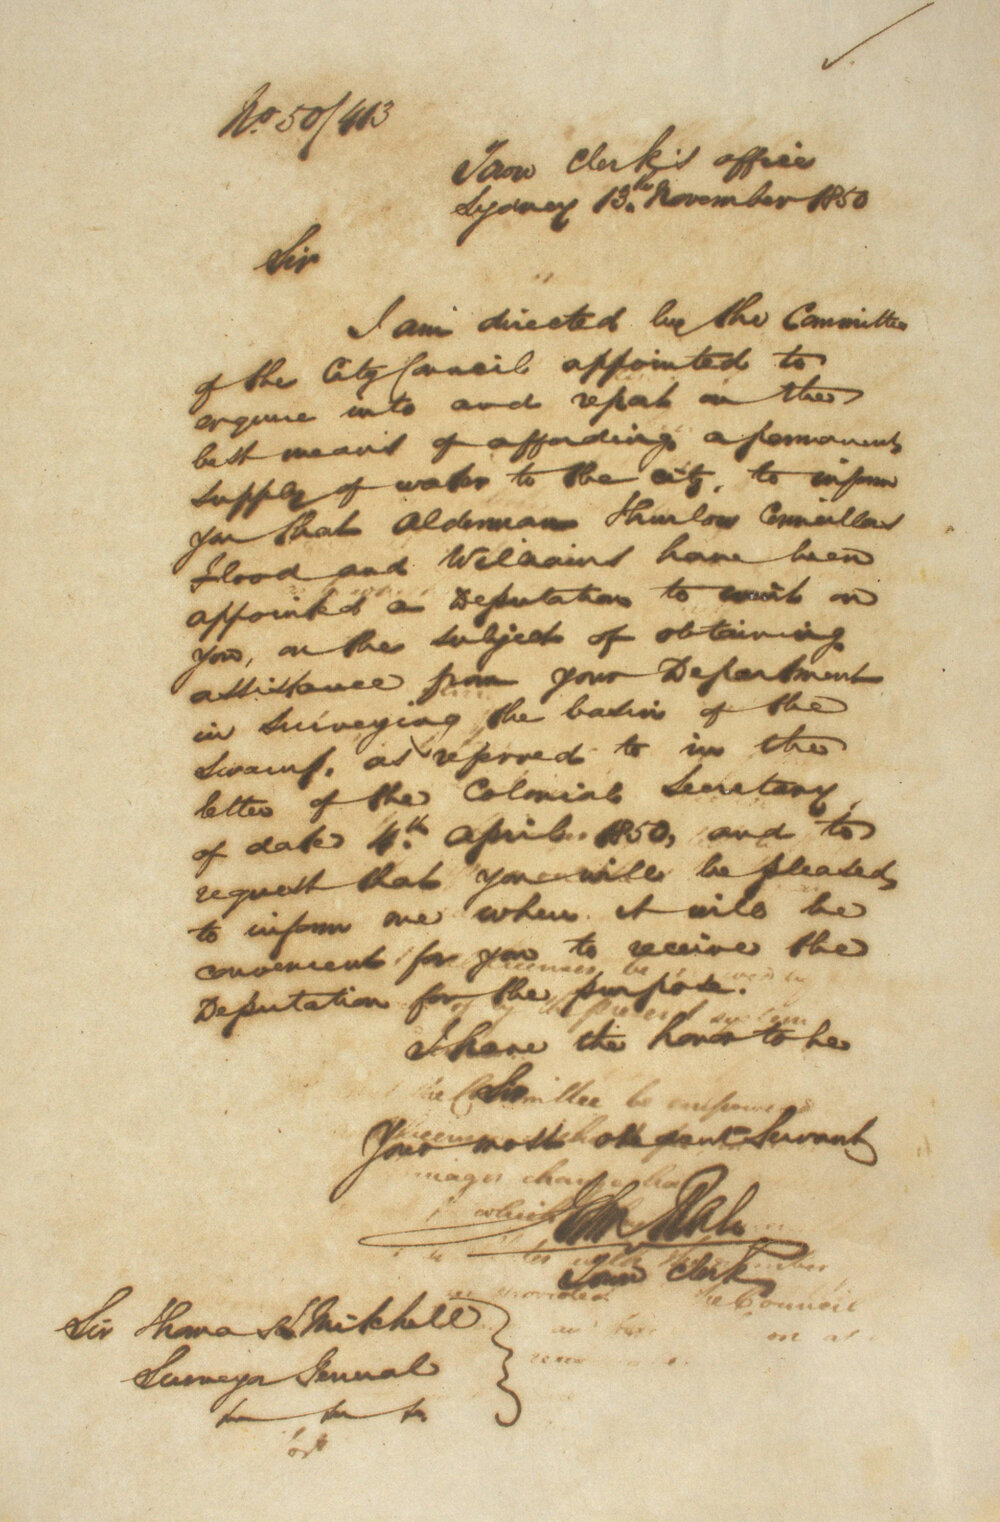 No. 50/413
Town Clerk's office
Sydney 13.th November 1850
Sir
I am directed by the Committee
of the City Council appointed to
enquire into and report on the
best means of affording a permanent
supply of water to the city, to inform
you that Alderman Thurlow Councillors
Flood and Williams have been
appointed a Deputation to wait on
you, on the subject of obtaining
assistance from your Department
in surveying the basin of the
Swamp, as referred to in the
letter of the Colonial Secretary,
of date 4.th April 1850, and to
request that you will be pleased
to inform me when it will be
convenient for you to receive the
Deputation for the purpose.
I have the honor to be
Sir
Your most obedient Servant
John Rae
Town Clerk
Sir Thomas L Mitchell
Surveyor General